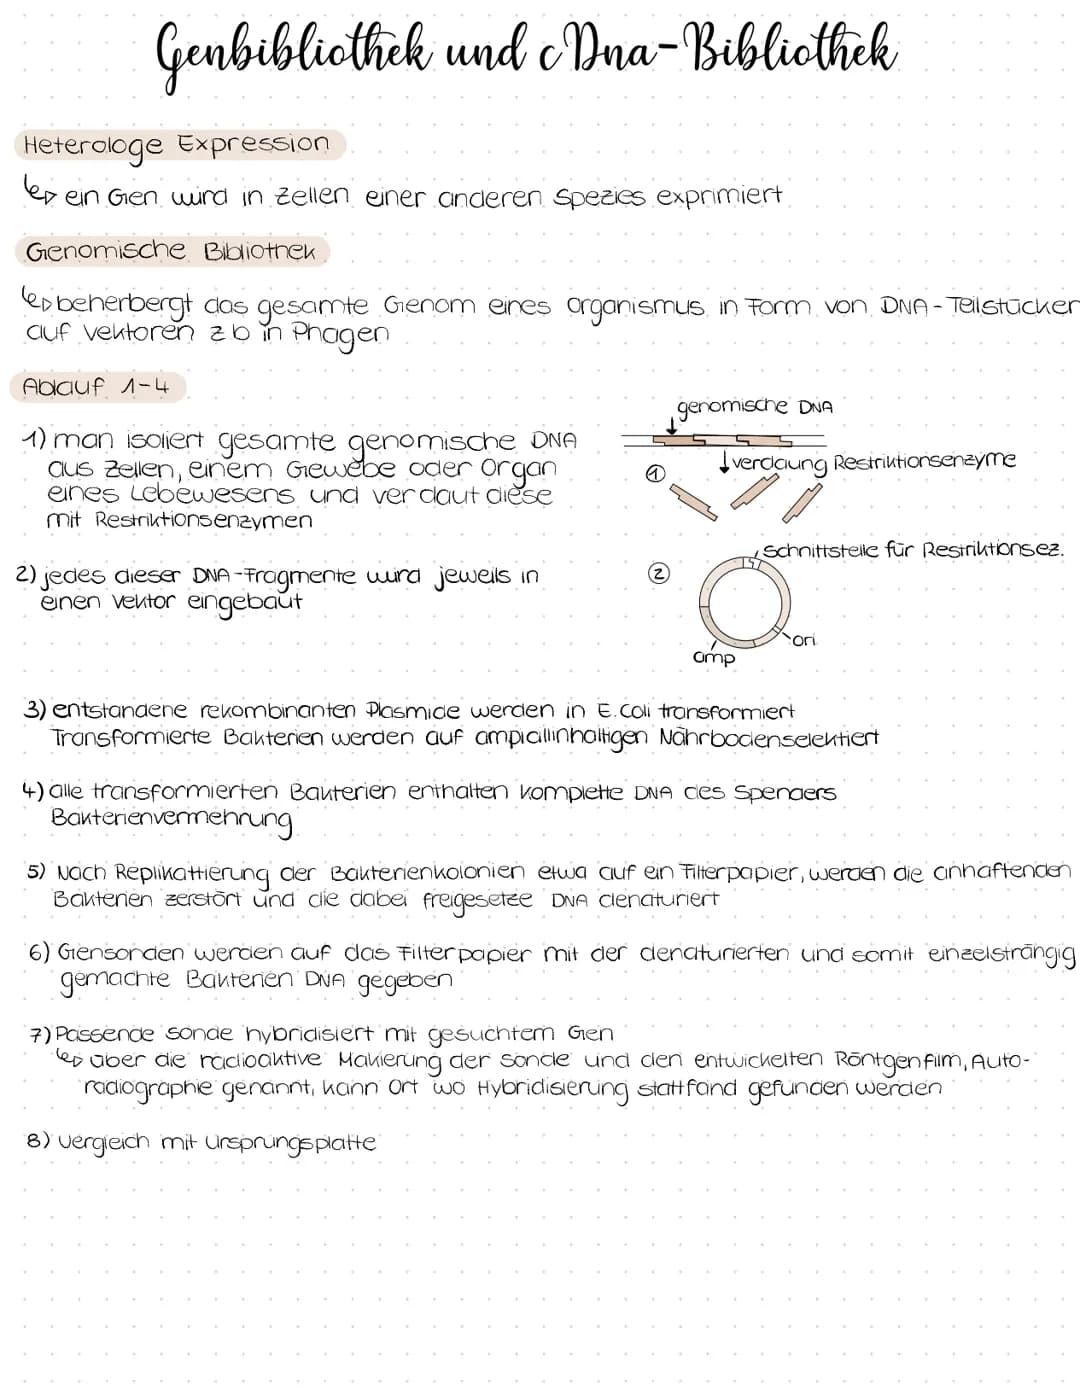 Genbibliothek und cDna-Bibliothek
Heterologe Expression
↳ ein Gen wird in Zellen einer anderen Spezies exprimiert
Genomische Bibliothek
↳ beherbergt das gesamte Genom eines Organismus in Form von DNA-Teilstücken
auf Vektoren zb in Phagen
Ablauf 1-4
1) man isoliert gesamte genomische DNA
aus Zellen, einem Gewebe oder Organ
eines Lebewesens und verdaut diese
mit Restriktionsenzymen
genomische DNA
↓verdauung Restriktionsenzyme
①
2) jedes dieser DNA-Fragmente wird jeweils in
einen Vektor eingebaut
②
Schnittstelle für Restriktionsez.
ori
amp
3) entstandene rekombinanten Plasmide werden in E.Coli transformiert
Transformierte Bakterien werden auf ampicillinhaltigen Nährboden selektiert
4) alle transformierten Bakterien enthalten komplette DNA des Spenders
Bakterienvermehrung
5) Nach Replikattierung der Bakterienkolonien etwa auf ein Filterpapier, werden die anhaftenden
Bakterien zerstört und die dabei freigesetze DNA denaturiert
6) Gensonden werden auf das Filterpapier mit der denaturierten und somit einzelsträngig
gemachte Bakterien DNA gegeben
7) Passende Sonde hybridisiert mit gesuchtem Gen
↳ über die radioaktive Makierung der Sonde und den entwickelten Röntgenfilm, Auto-
radiographie genannt, kann Ort wo Hybridisierung stattfand gefunden werden
8) Vergleich mit Ursprungsplatte